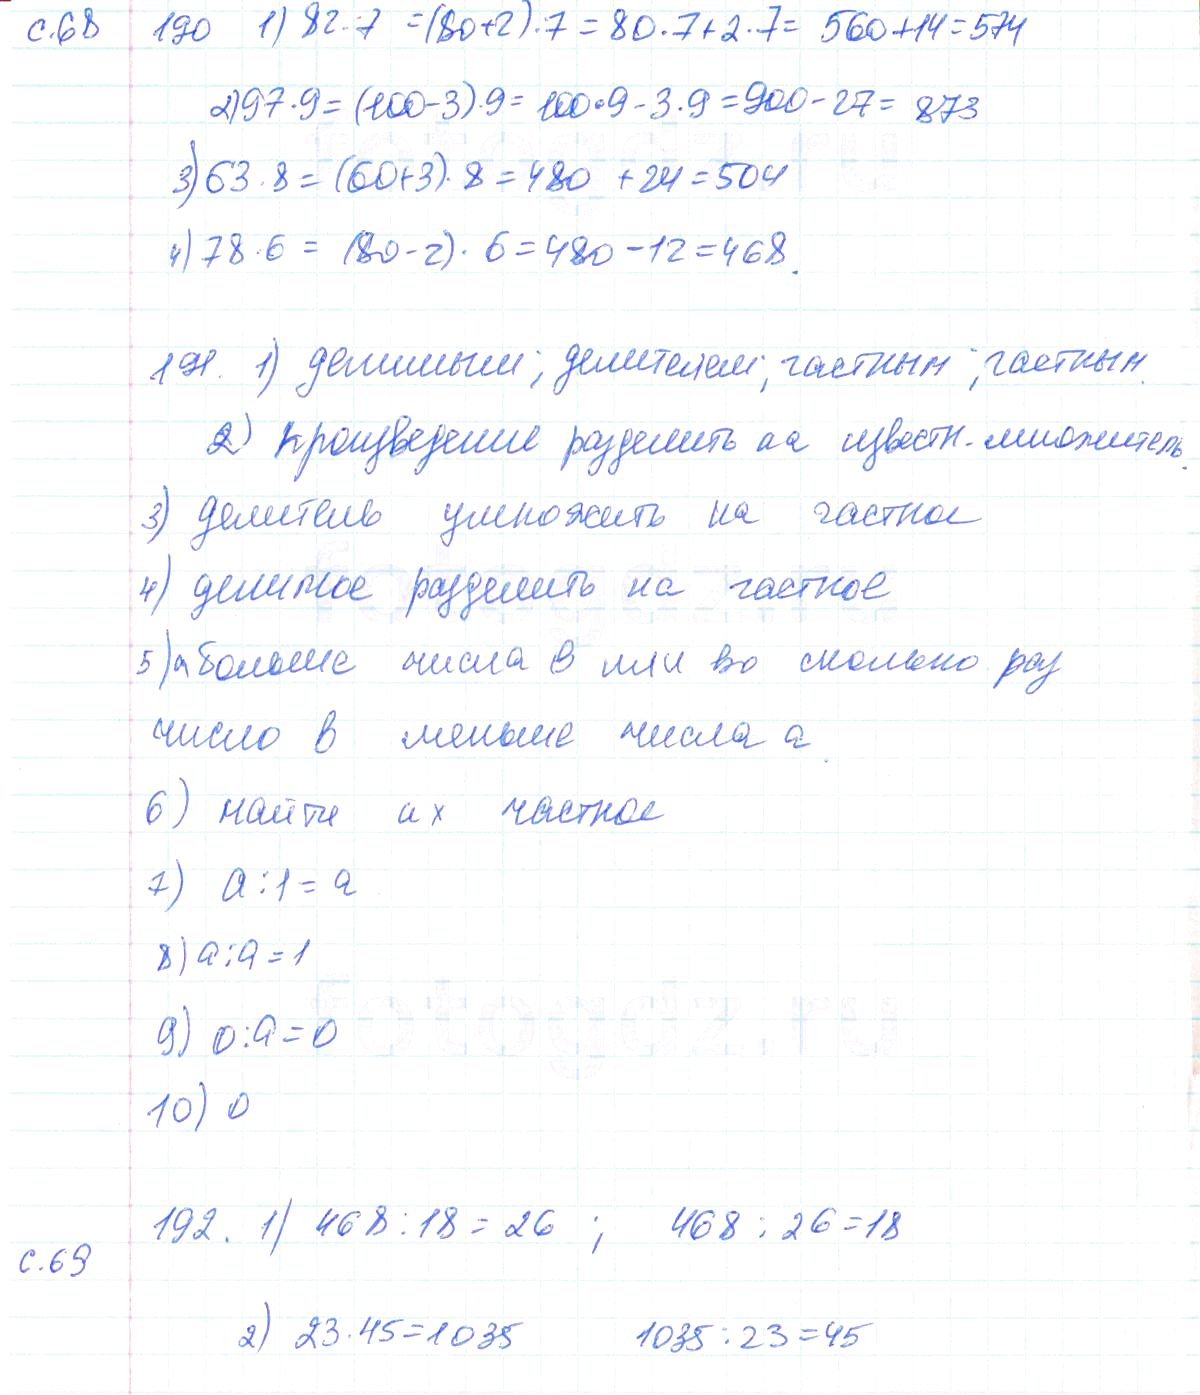 с.68 190 1) 82·7 =(80+2)·7=80·7+2·7= 560+14=574
2)97·9=(100-3)·9=100·9-3·9=900-27= 873
3)63·8=(60+3)·8=480 +24=504
4)78·6= (80-2)·6=480-12=468.
191. 1) делимым; делителем; частным; частным
2) произведение разделить на известн. множитель.
3) делитель умножить на частное
4) делимое разделить на частное
5) а больше числа в или во сколько раз
число в меньше числа а.
6) найти их частное
7) а:1=а
8) а:а=1
9) 0:а=0
10) 0
192. 1) 468:18=26 ; 468:26=18
с.69
2) 23·45=1035 1035:23=45
fotogdz.ru
fotogdz.ru
fotogdz.ru